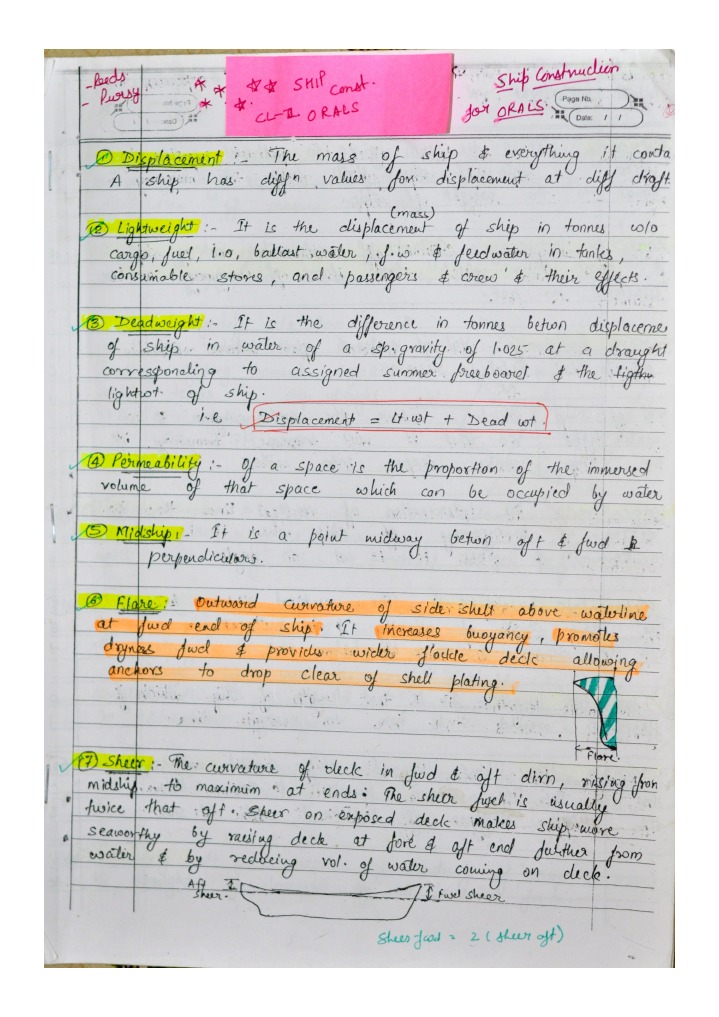 - Reeds
- Pursy
☆☆ SHIP const.
CL-II ORALS
Ship Construction
for ORALS
Page No.
Date: / /
① Displacement :- The mass of ship & everything it conta
A ship has diffn values for displacement at diff draft.
(mass)
② Lightweight :- It is the displacement of ship in tonnes w/o
cargo, fuel, l.o, ballast water, f.w & feedwater in tanks,
consumable stores, and passengers & crew & their effects.
③ Deadweight :- It is the difference in tonnes betwn displaceme
of ship in water of a sp. gravity of 1.025 at a draught
corresponding to assigned summer freeboard & the
lightwt. of ship.
i.e Displacement = Lt.wt + Dead wt.
④ Permeability :- Of a space is the proportion of the immersed
volume of that space which can be occupied by water
⑤ Midship :- It is a point midway betwn aft & fwd
perpendiculars.
⑥ Flare :- Outward curvature of side shell above waterline
at fwd end of ship. It increases buoyancy, promotes
dryness fwd & provides wider f'ocsle deck allowing
anchors to drop clear of shell plating.
Flare.
⑦ Sheer :- The curvature of deck in fwd & aft dirn, rising from
midship to maximum at ends. The sheer fwd is usually
twice that aft. Sheer on exposed deck makes ship more
seaworthy by raising deck at fore & aft end further from
water & by reducing vol. of water coming on deck.
Aft
sheer.
Fwd sheer
Sheer fwd = 2 (sheer aft)